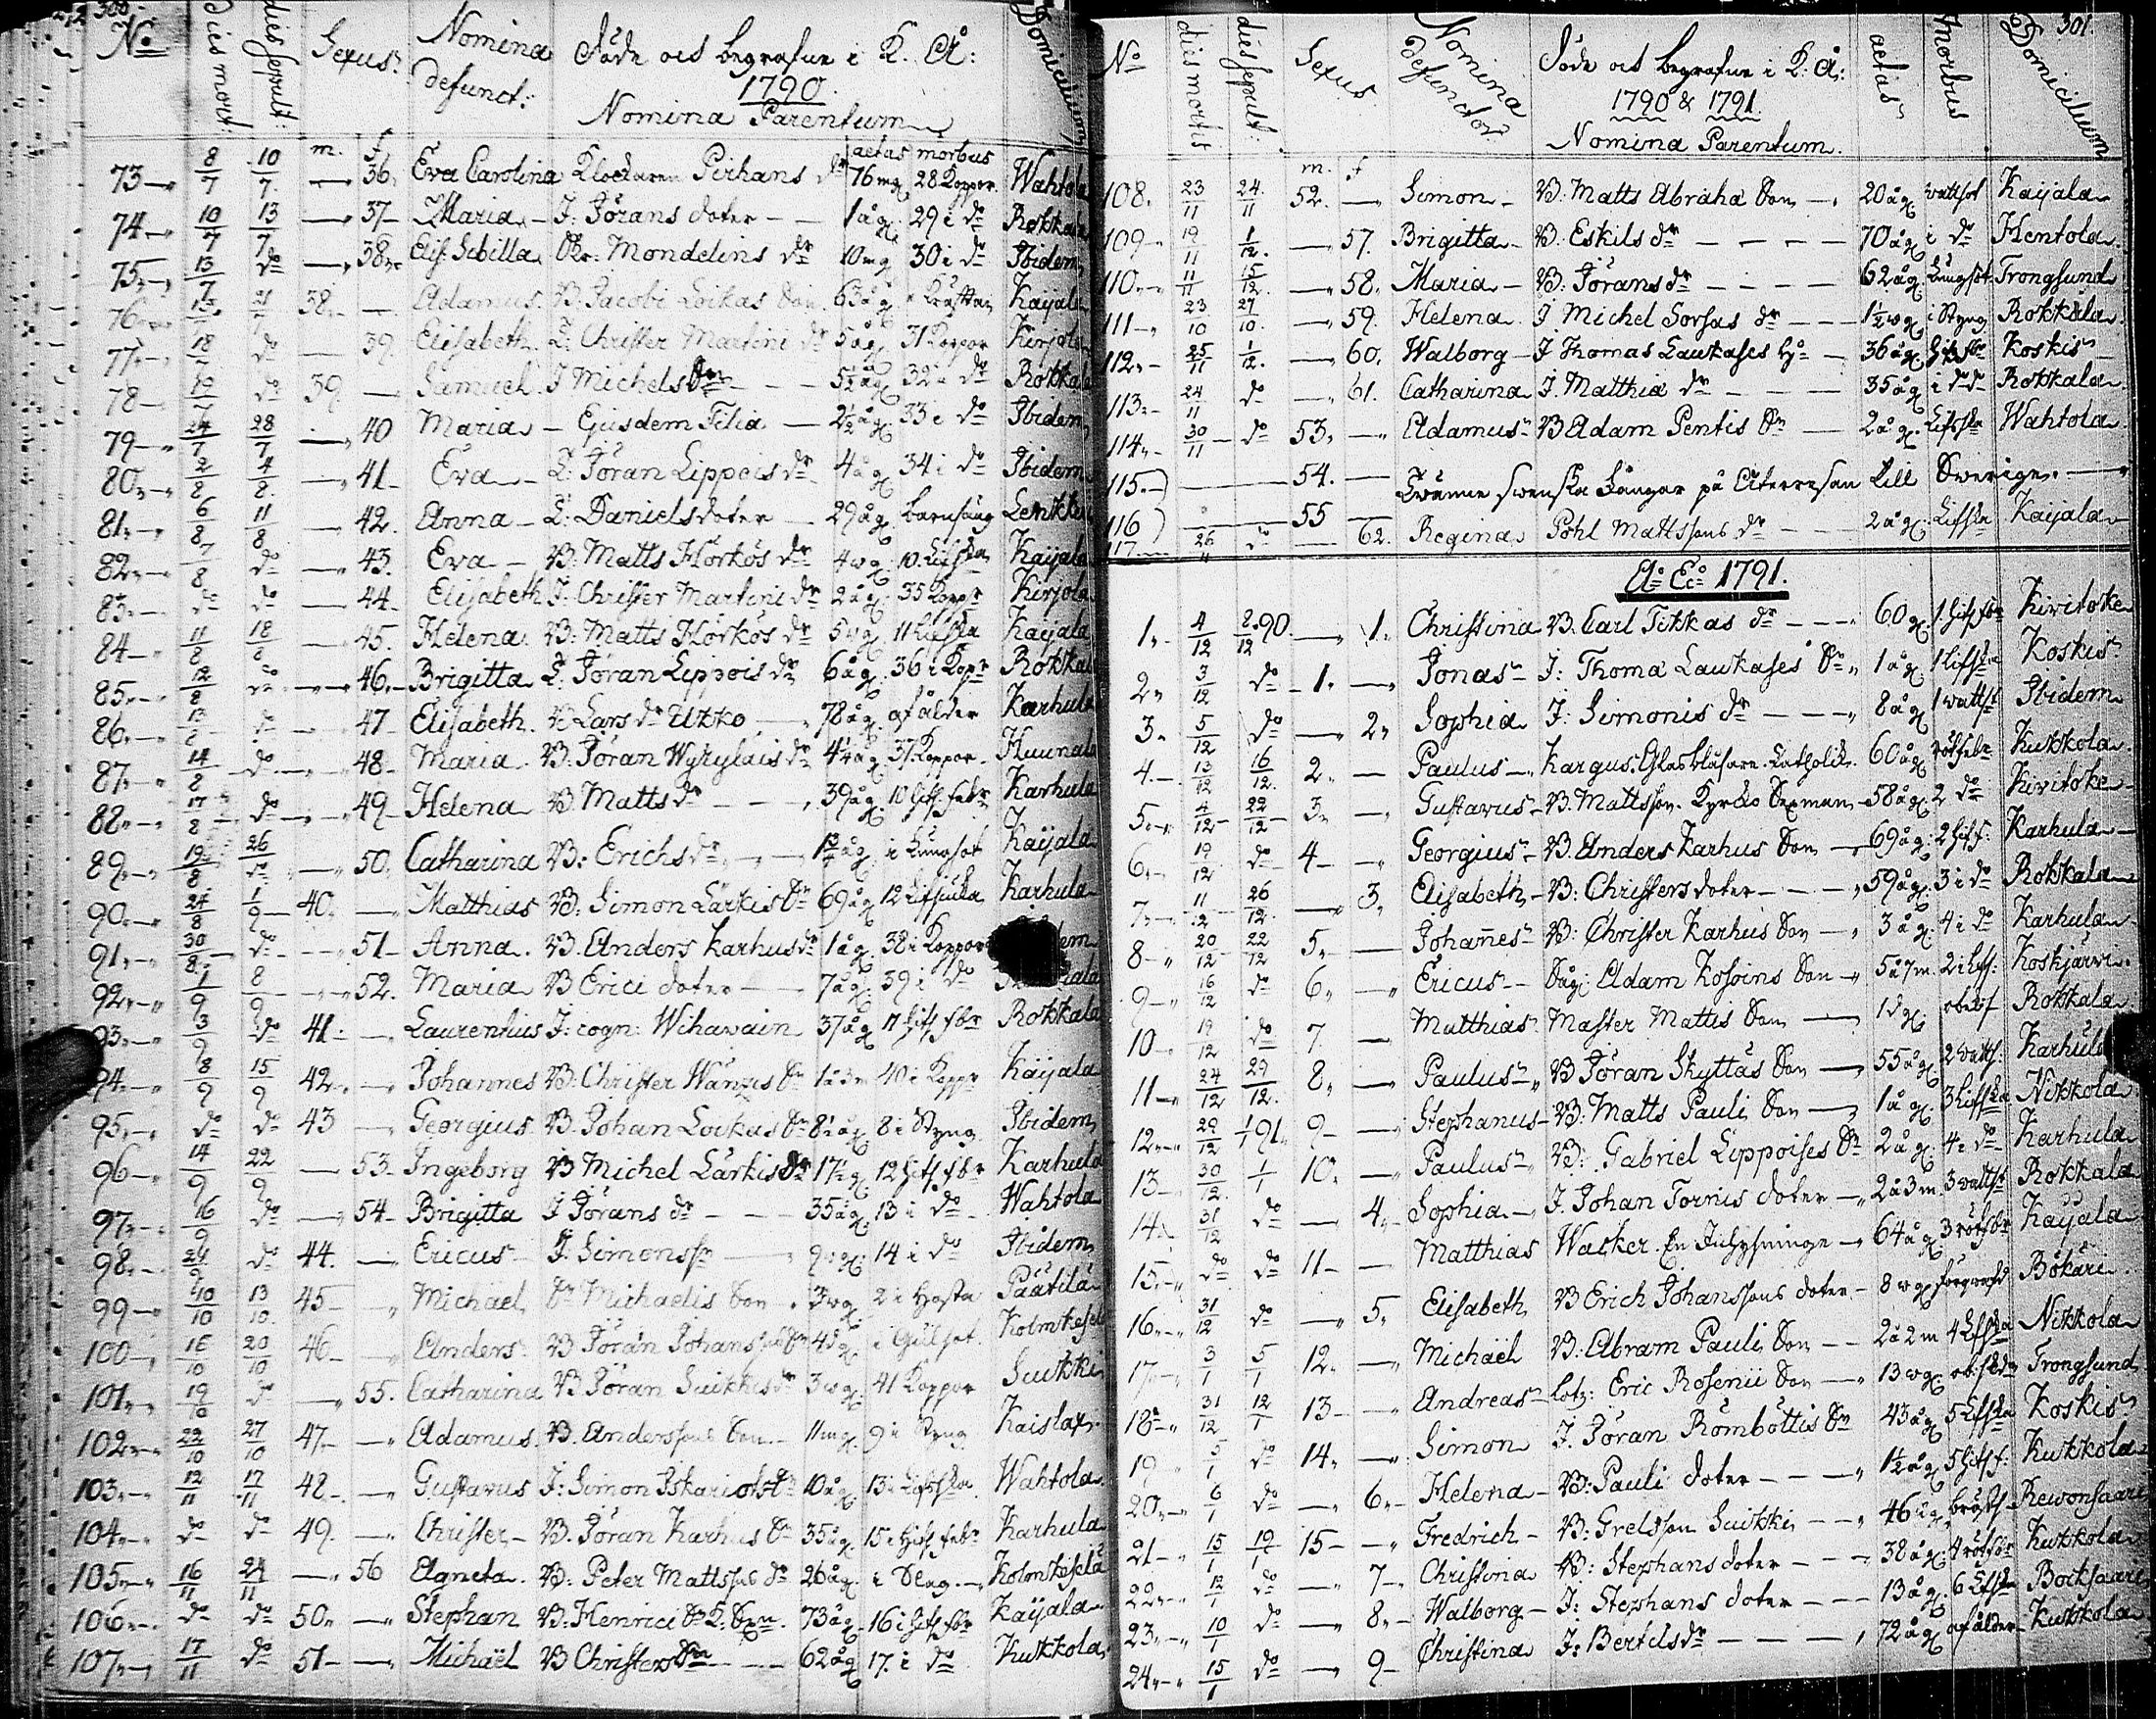 300.
No Dies mort: dies sepult: Sexus Nomina defunct: Döde och begrafne i K. Å: 1790. Nomina Parentum Domicilium
m. f. aetas morbus
73 8/7 10/7 36. Eva Carolina Klockaren Pirhans dr 76 mg. 28 Koppor. Wahtola
74 10/7 13/7 37 Maria J: Jörans doter 1 åg. 29 i do Rokkala
75 13/7 do 38 Elis: Sibilla Mondelins dr 10 mg 30 i do Ibidem
76 21/7 38. Adamus B. Jacobi Loikas Son 63 åg Kaijala
77 18/7 do 39. Elisabeth L: Christer Martini dr 5 åg 31 Koppor Kirjola
78 19/7 do 39. Samuel J Michels Son 5½ åg. 32 i do Rokkala
79 24/7 28/7 40 Maria Ejusdem Filia 2½ åg. 33 i do Ibidem
80 2/8 4/8 41 Eva L: Jöran Lippois dr 4 åg 34 i do Ibidem
81 6/8 11/8 42. Anna L: Daniels doter 29 åg. barnsäng
82 7/8 do 43. Eva B: Matts Hörkös dr 4 wg. 10. Lifsika Kaijala
83 do do 44 Elisabeth J: Christer Martini dr 2 åg. 35 Koppr Kirjola
84 11/8 18/8 45. Helena. B: Matts Hörkös dr 5 wg. 11 Lifsika Kaijala
85 12/8 do 46. Brigitta L: Jöran Lippois dr 6 åg. 36 i Kopr Rokkala
86 13/8 do 47 Elisabeth. B Lars dr Ukko 78 åg af ålder Karhula
87 14/8 do 48 Maria. B: Jöran Wyrylais dr 4¼ åg 37. Koppor Huunala
88 17/8 do 49 Helena B. Matts dr 39 åg. 10 hits. febr Karhula
89 19/8 26/8 50. Catharina B: Erichs dr åg. i Lungsot Kaijala
90 24/8 1/9 40. Matthias B: Simon Lärkis Sn 69 åg 12 Lifsika Karhula
91 30/8 do 51 Anna. B Anders Karhus dr 1 åg. 38 i Koppor
92 1/9 8/9 52. Maria B Erici doter 7 åg 39 i do
93 3/9 do 41 Laurentius J: cogn: Wihavain 37 åg Rokkala
94 8/9 15/9 42. Johannes B: Christer Wänzis Sn 40 i Koppr Kaijala
95 do do 43 Georgius B Johan Loikas Sn 8½ åg. 8 i Styng Ibidem
96 14/9 22/9 53. Ingeborg B Michel Lärkis dr 12 hits. fbr Karhula
97 16/9 do 54 Brigitta J Jörans dr 35 åg. 13 i do Wahtola
98 24/9 do 44. Ericus J. Simonss 9 wg. 14 i do Ibidem
99 10/10 13/10 45 Michael Michaelis Son 3 wg 2 i Hosta Päätilä
100 16/10 20/10 46 Anders B Jöran Johanssons 4 dg. i Gulsot
101 19/10 do 55. Catharina B Jöran Suikkis dr 3 wg 41 Koppor Suikki
102 22/10 27/10 47 Adamus. B. Anderssons Son 11 mg. 9 i Styng Kaislax
103 12/11 17/11 48 Gustavus J: Simon Iskariots Sn 10 åg 13 i Lifsika Wahtola
104 do do 49. Christer B. Jöran Karhus Sn 35 åg 15 i hits. febr Karhula
105 16/11 24/11 56 Agneta. B: Peter Mattssons dr 26 åg. i Slag
106 do do 50 Stephan B: Henrici Sn 73 åg 16 i hits. fbr Kaijala
107 17/11 do 51 Michaël B Christers Sn 62 åg 17. i do Kukkola
301.
No dies mortis dies sepult: Sexus Nomina defunctor Döde och begrafne i K: Å: 1790 & 1791. Nomina Parentum. aetas morbus Domicilium
m. f
108. 23/11 24/11 52. Simon B: Matts Abraha Son 20 åg. wattsot Kaijala
109 19/11 1/12 57. Brigitta B. Eskils dr 70 åg i do Hentola
110 11/11 15/12 58. Maria B: Jörans dr 62 åg. Lungsot Trongsund
111 23/10 27/10 59. Helena. J Michel Sorsas dr 1½ wg. i Styng Rokkala
112 25/11 1/12 60. Walborg J Thomas Laukases 36 åg. Koskis
113 24/11 do 61. Catharina J. Matthiæ dr 35 åg i do Rokkala
114 30/11 do 53. Adamus B Adam Pentis Sn 2 åg. Lifsika Wahtola
115 54. Twänne swenska Fångar på Återresan till Swerige.
116 55
117 26/11 do 62. Regina Pohl Mattssons dr 2 åg. Lifska Kaijala
Ao Eo 1791.
1. 4/12 2/12 90. 1. Christina B. Carl Tikkas dr 60 g. Kivitoke
2. 3/12 do 1. Jonas J: Thoma Laukases Sn 1 åg. 1 Lifska Koskis
3. 5/12 do 2. Sophia J: Simonis dr 8 åg 1 wattst Ibidem
4. 13/12 16/12 2. Paulus Kargus. Glasblåsare. Katholik. 60 åg rötfebr Kukkola
5. 4/12 22/12 3. Gustavus B. Mattsson. Kyrko Sexman 58 åg 2 do Kivitoke
6. 19/12 do 4 Georgius B. Anders Karhus Son 69 åg. 2 hits f. Karhula
7. 11/12 26/12 3. Elisabeth B: Christers doter 59 åg. 3 i do Rokkala
8 20/12 22/12 5. Johannes B: Christer Karhus Son 3 åg. 4 i do Karhula
9 16/12 do 6. Ericus Adam Kosoins Son 5 å 7 m. Koskjärwi
10 19/12 do 7. Matthias Mäster Mattis Son 1 dg. Rokkala
11 24/12 29/12 8. Paulus B Jöran Skyttäs Son 55 åg. 2 watts. Karhula
12 29/12 1/1 91. 9 Stephanus B: Matts Pauli Son 1 åg. 3 Lifska Nikkola
13 30/12 1/1 10. Paulus B: Gabriel Lippoises Sn 2 åg. 4 i do Karhula
14 31/12 do 4. Sophia J. Johan Tornis doter 2 å 3 m. 3 wattst Rokkala
15 do do 11 Matthias Wasker. En 64 åg 3 rötfbr Kaijala
16 31/12 do 5. Elisabeth B Erich Johanssons doter 8 wg. Bökari
17 3/1 5/1 12. Michaël B: Abram Pauli Son 2 å 2 m 4 Lifska Nikkola
18 31/12 12/1 13 Andreas Lotz: Eric Rosenii Son 13 wg. Trongsund
19 5/1 do 14. Simon J. Jöran Römböttis Sn 43 åg. 5 Lifska Koskis
20 6/1 do 6. Helena B: Pauli doter 1½ åg 5 hits f. Kukkola
21 15/1 19/1 15 Fredrich B: Grelsson Suikki 46 åg. bröst Rewonsaari
22 12/1 do 7 Christina B: Stephans doter 38 åg. 4 rötfbr Kukkola
23 10/1 do 8. Walborg J: Stephans doter 13 åg. 6 Lifska Bocksaari
24 15/1 do 9 Christina J: Bertels dr 72 åg af ålder Kukkola